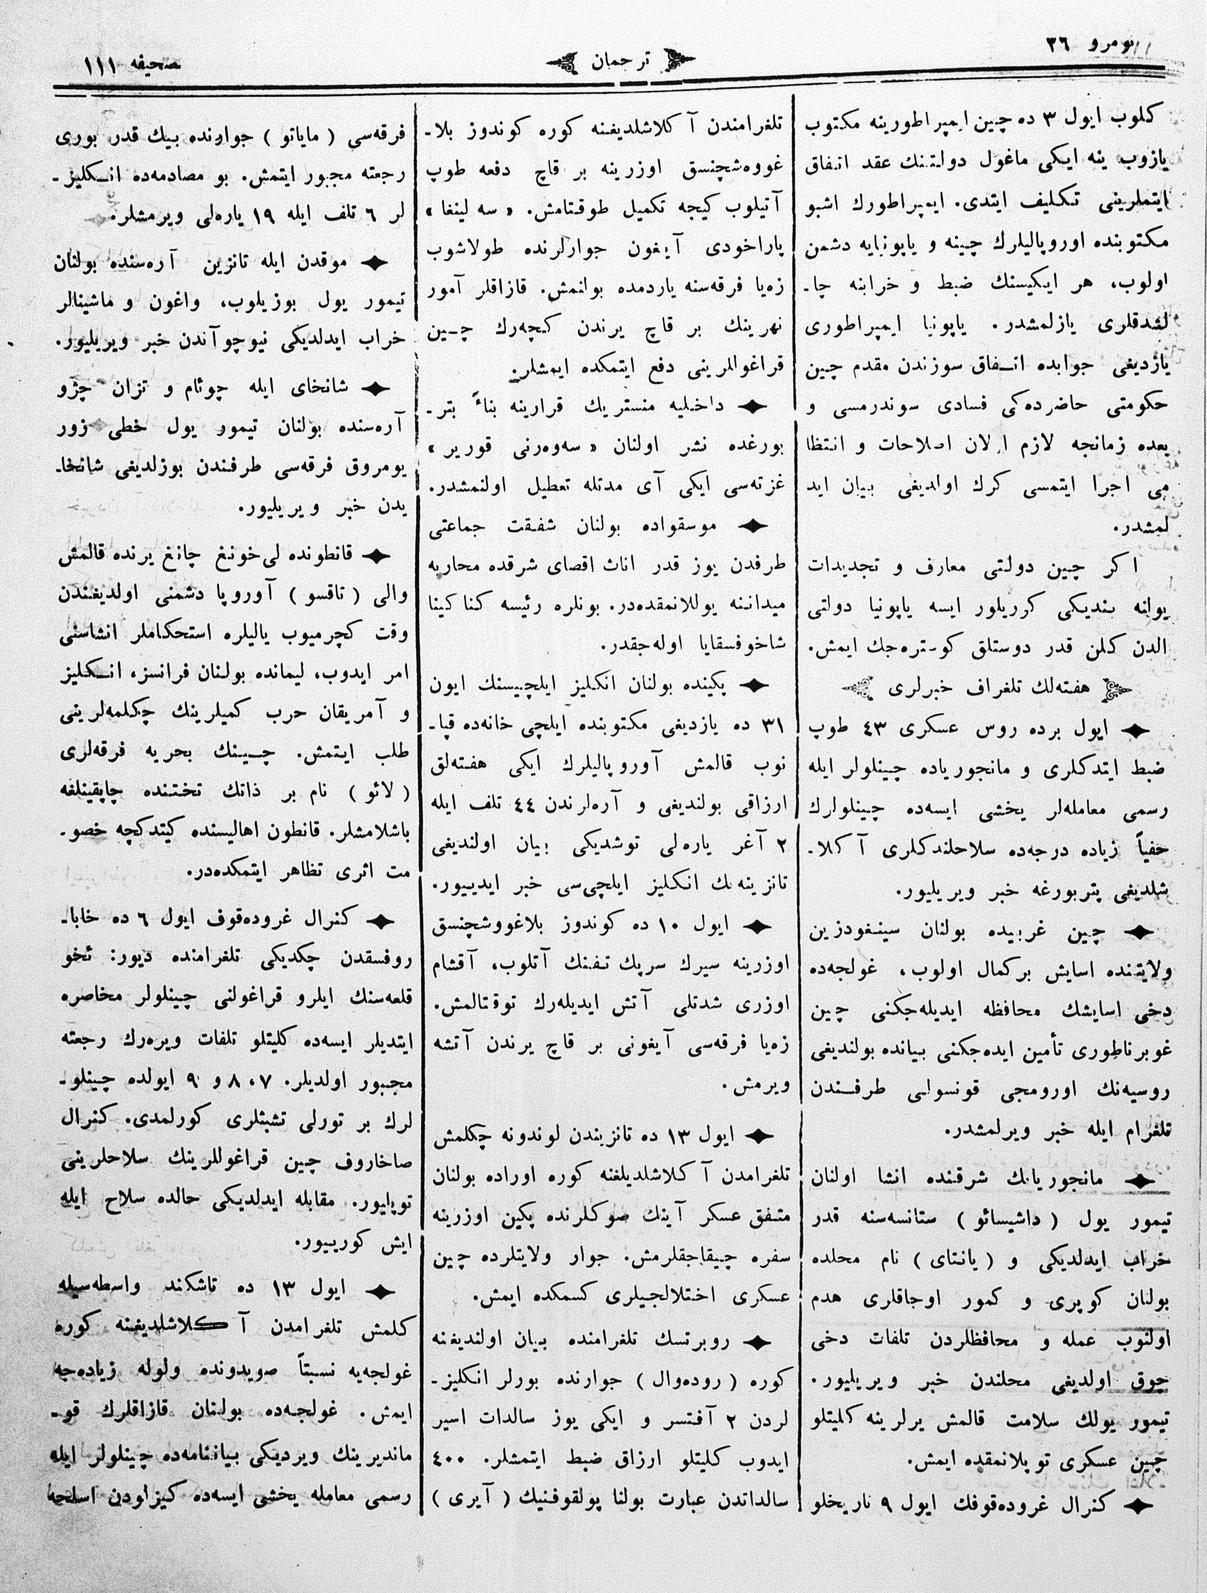 نومرو ٣٦
ترجمان
صحیفه ١١١
كلوب ایول ٣ ده چین ایمپراطورینه مكتوب
یازوب ینه ایكی ماغول دولتنك عقد اتفاق
ایتملرینی تكلیف ایتدی. ایمپراطورك اشبو
مكتوبنده اوروپالیلرك چینه و یاپونیایه دشمن
اولوب، هر ایكیسنك ضبط و خرابنه چا-
لشدقلری یازلمشدر. یاپونیا ایمپراطوری
یازدیغی جوابده اتفاق سوزندن مقدم چین
حكومتی حاضرده‌كی فسادی سوندرمسی و
بعده زمانجه لازم اولان اصلاحات و انتظا
می اجرا ایتمسی كرك اولدیغی بیان اید
لمشدر.
اكر چین دولتی معارف و تجدیدات
یولنه بندیكی كوریلور ایسه یاپونیا دولتی
الدن كلن قدر دوستلق كوستره‌جك ایمش.
هفته‌لك تلغراف خبرلری
ایول برده روس عسكری ٤٣ طوپ
ضبط ایتدكلری و مانجوریاده چینلولر ایله
رسمی معامله‌لر یخشی ایسه‌ده چینلولرك
خفیاً زیاده درجه‌ده سلاحلندكلری آكلا-
شلدیغی پتربورغه خبر ویریلیور.
چین غربیده بولنان سینغودزین
ولایتنده اسایش بركمال اولوب، غولجه‌ده
دخی اسایشك محافظه ایدیله‌جكنی چین
غوبرناطوری تأمین ایده‌جكنی بیانده بولندیغی
روسیه‌نك اورومجی قونسولی طرفندن
تلغرام ایله خبر ویرلمشدر.
مانجوریانك شرقنده انشا اولنان
تیمور یول (داشیسائو) ستانسه‌سنه قدر
خراب ایدلدیكی و (یانتای) نام محلده
بولنان كوپری و كمور اوجاقلری هدم
اولنوب عمله و محافظلردن تلفات دخی
چوق اولدیغی محلندن خبر ویریلیور.
تیمور یولك سلامت قالمش یرلرینه كلیتلو
چین عسكری توپلانمقده ایمش.
كنرال غروده‌قوفك ایول ٩ تاریخلو
تلغرامندن آكلاشلدیغنه كوره كوندوز بلا-
غووه‌شچنسق اوزرینه بر قاچ دفعه طوپ
آتیلوب كیجه تكمیل طوقتامش. «سه‌لینغا»
پاراخودی آیغون جوارلرنده طولاشوب
زه‌یا فرقه‌سنه یاردمده بولنمش. قازاقلر آمور
نهرینك بر قاچ یرندن كچه‌رك چین
قراغوللرینی دفع ایتمكده ایمشلر.
داخلیه منستریك قرارینه بناءً پتر-
بورغده نشر اولنان «سه‌وه‌رنی قوریر»
غزته‌سی ایكی آی مدتله تعطیل اولنمشدر.
موسقواده بولنان شفقت جماعتی
طرفدن یوز قدر اناث اقصای شرقده محاربه
میداننه یوللانمقده‌در. بونلره رئیسه كناكینا
شاخوفسقایا اوله‌جقدر.
پكینده بولنان انكلیز ایلچیسنك ایون
٣١ ده یازدیغی مكتوبنده ایلچی خانه‌ده قپا-
نوب قالمش آوروپالیلرك ایكی هفته‌لق
ارزاقی بولندیغی و آره‌لرندن ٤٤ تلف ایله
٢ آغر یاره‌لی توشدیكی بیان اولندیغی
تانزینه‌ك انكلیز ایلچی‌سی خبر ایدییور.
ایول ١٠ ده كوندوز بلاغووشچنسق
اوزرینه سیرك سرپك تفنك آتلوب، آقشام
اوزری شدتلی آتش ایدیله‌رك توقتالمش.
زه‌یا فرقه‌سی آیغونی بر قاچ یرندن آتشه
ویرمش.
ایول ١٣ ده تانزیندن لوندونه چكلمش
تلغرامدن آكلاشلدیلغنه كوره اوراده بولنان
متفق عسكر آینك صوكلرنده پكین اوزرینه
سفره چیقاجقلرمش. جوار ولایتلرده چین
عسكری اختلالجیلری كسمكده ایمش.
روبرتسك تلغرامنده بیان اولندیغنه
كوره (روده‌وال) جوارنده بورلر انكلیز-
لردن ٢ آفتسر و ایكی یوز سالدات اسیر
ایدوب كلیتلو ارزاق ضبط ایتمشلر. ٤٠٠
سالداتدن عبارت بولنا پولقوفنیك (آیری)
فرقه‌سی (مایاتو) جوارنده بیك قدر بوری
رجعته مجبور ایتمش. بو مصادمه‌ده انكلیز-
لر ٦ تلف ایله ١٩ یاره‌لی ویرمشلر.
موقدن ایله تانزین آره‌سنده بولنان
تیمور یول بوزیلوب، واغون و ماشینالر
خراب ایدلدیكی نیوچوآندن خبر ویریلیور.
شانخای ایله چوئام و تزان چژو
آره‌سنده بولنان تیمور یول خطی زور
یومروق فرقه‌سی طرفندن بوزلدیغی شانخا-
یدن خبر ویریلیور.
قانطونده لی‌خونغ چانغ یرنده قالمش
والی (تاقسو) آوروپا دشمنی اولدیغندن
وقت كچرمیوب یالیلره استحكاملر انشاسنی
امر ایدوب، لیمانده بولنان فرانسز، انكلیز
و آمریقان حرب كمیلرینك چكلمه‌لرینی
طلب ایتمش. چینك بحریه فرقه‌لری
(لائو) نام بر ذاتك تختنده چاپقینلغه
باشلامشلر. قانطون اهالیسنده كیتدكچه خصو-
مت اثری تظاهر ایتمكده‌در.
كنرال غروده‌قوف ایول ٦ ده خابا-
روفسقدن چكدیكی تلغرامنده دیور: ئخو
قلعه‌سنك ایلرو قراغولنی چینلولر محاصره
ایتدیلر ایسه‌ده كلیتلو تلفات ویره‌رك رجعته
مجبور اولدیلر. ٨،٧ و ٩ ایولده چینلو-
لرك بر تورلی تشبثلری كورلمدی. كنرال
صاخاروف چین قراغوللرینك سلاحلرینی
توپلیور. مقابله ایدلدیكی حالده سلاح ایله
ایش كورییور.
ایول ١٣ ده تاشكند واسطه‌سیله
كلمش تلغرامدن آكلاشلدیغنه كوره
غولجه‌یه نسبتاً صویدونده ولوله زیاده‌جه
ایمش. غولجه‌ده بولنان قازاقلرك قو-
ماندیرینك ویردیكی بیاننامه‌ده چینلولر ایله
رسمی معامله یخشی ایسه‌ده كیزلودن اسلحه